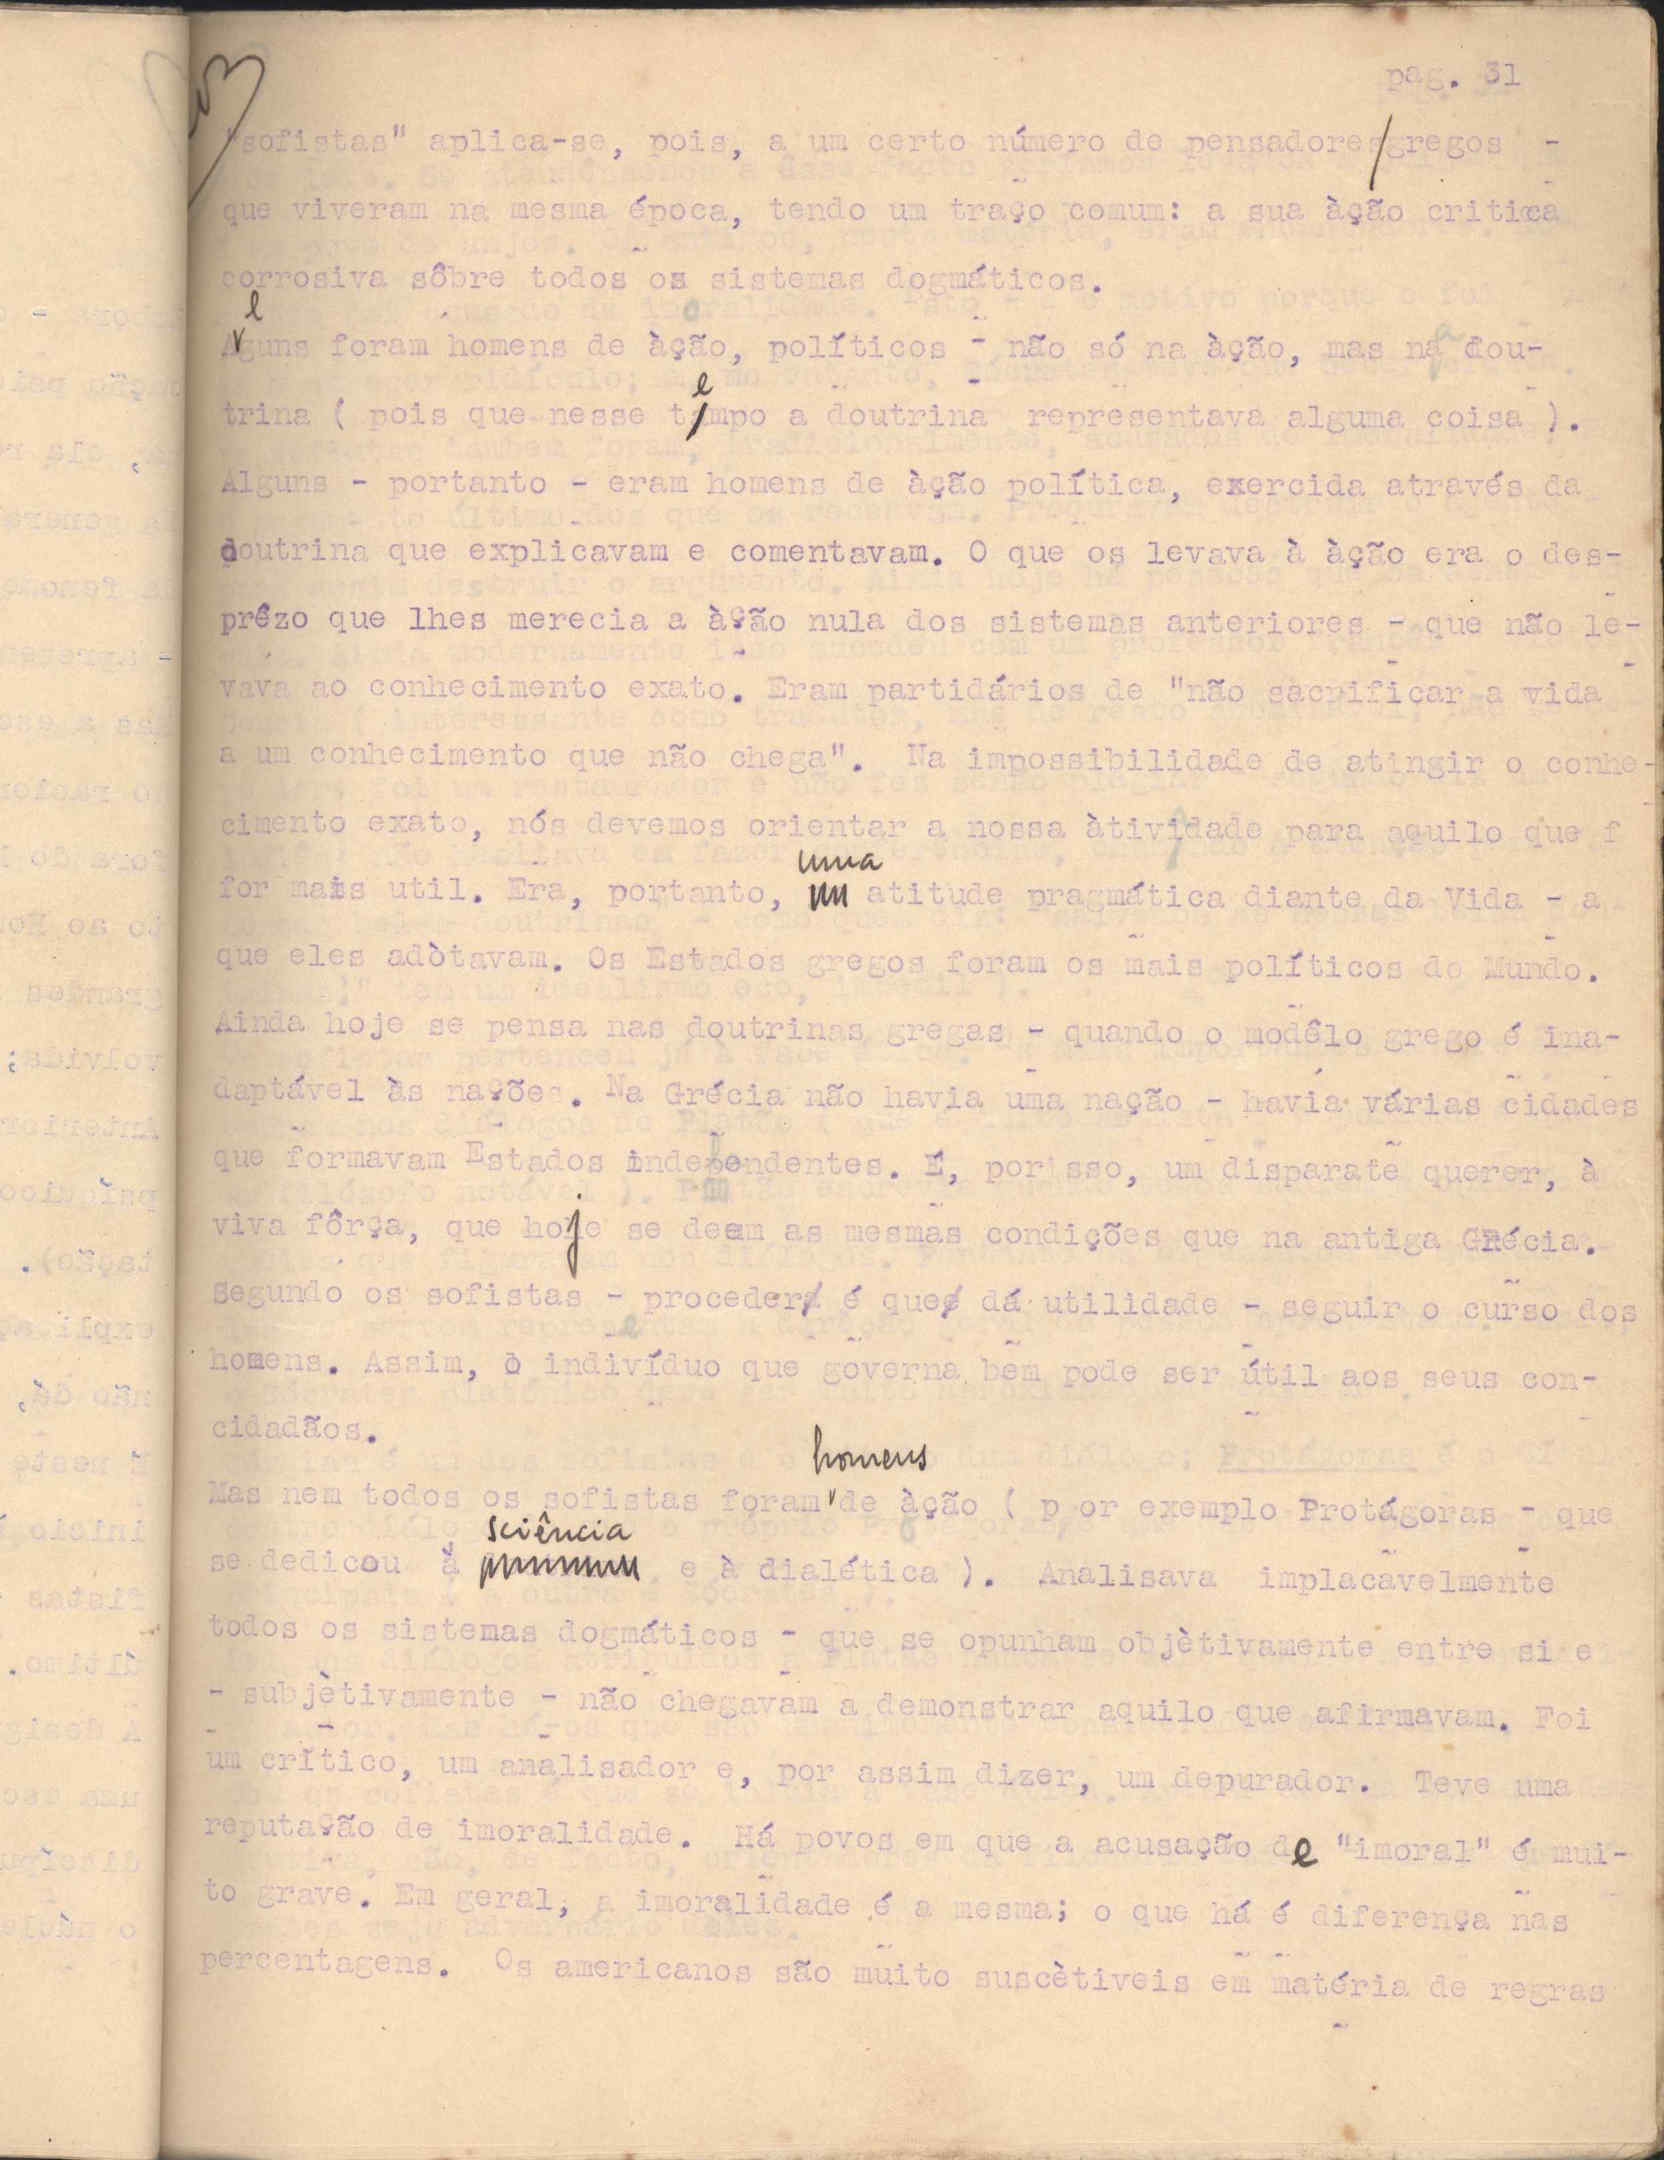 pag. 31
"sofistas" aplica-se, pois, a um certo número de pensadores/gregos -
que viveram na mesma época, tendo um traço comum: a sua àção critica
corrosiva sôbre todos os sistemas dogmáticos.
Alguns foram homens de àção, políticos - não só na àção, mas na dou-
trina ( pois que nesse tempo a doutrina representava alguma coisa ).
Alguns - portanto - eram homens de àção política, exercida através da
doutrina que explicavam e comentavam. O que os levava à àção era o des-
prêzo que lhes merecia a àção nula dos sistemas anteriores - que não le-
vava ao conhecimento exato. Eram partidários de "não sacrificar a vida
a um conhecimento que não chega". Na impossibilidade de atingir o conhe-
cimento exato, nós devemos orientar a nossa àtividade para aquilo que f
for mais util. Era, portanto, uma atitude pragmática diante da Vida - a
que eles adòtavam. Os Estados gregos foram os mais políticos do Mundo.
Ainda hoje se pensa nas doutrinas gregas - quando o modêlo grego é ina-
daptável às nações. Na Grécia não havia uma nação - havia várias cidades
que formavam Estados independentes. É, por isso, um disparate querer, à
viva fôrça, que hoje se deem as mesmas condições que na antiga Grécia.
Segundo os sofistas - proceder é que dá utilidade - seguir o curso dos
homens. Assim, o indivíduo que governa bem pode ser útil aos seus con-
cidadãos.
Mas nem todos os sofistas foram homens de àção ( p or exemplo Protágoras - que
se dedicou à sciência e à dialética ). Analisava implacavelmente
todos os sistemas dogmáticos - que se opunham objètivamente entre si e
- subjètivamente - não chegavam a demonstrar aquilo que afirmavam. Foi
um crítico, um analisador e, por assim dizer, um depurador. Teve uma
reputação de imoralidade. Há povos em que a acusação de "imoral" é mui-
to grave. Em geral, a imoralidade é a mesma; o que há é diferença nas
percentagens. Os americanos são muito suscètiveis em matéria de regras